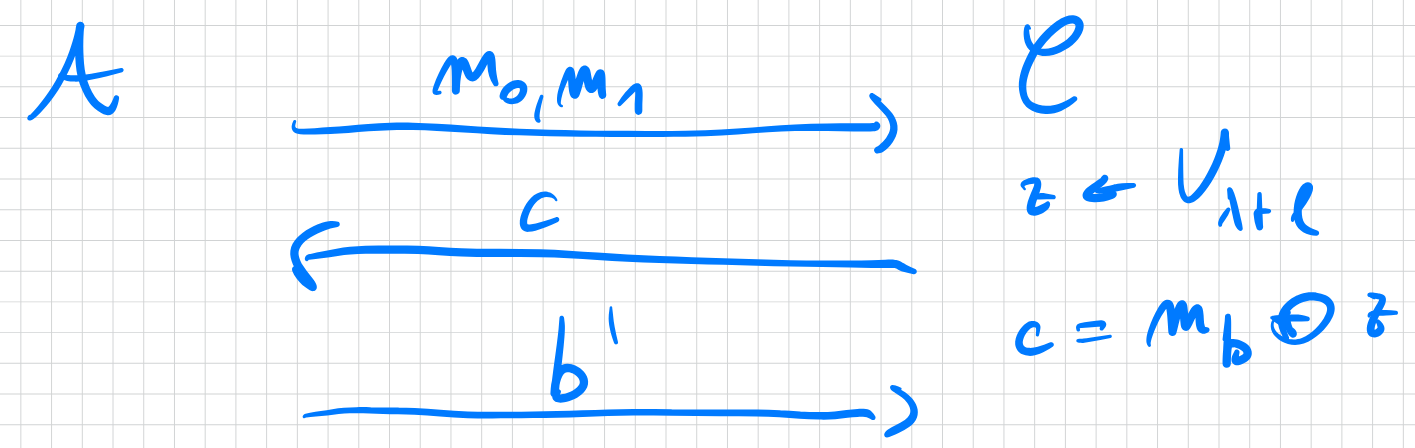 𝒜 m₀, m₁ 𝒞
z ← U_{λ+ℓ}
c
c = m_b ⊕ z
b'